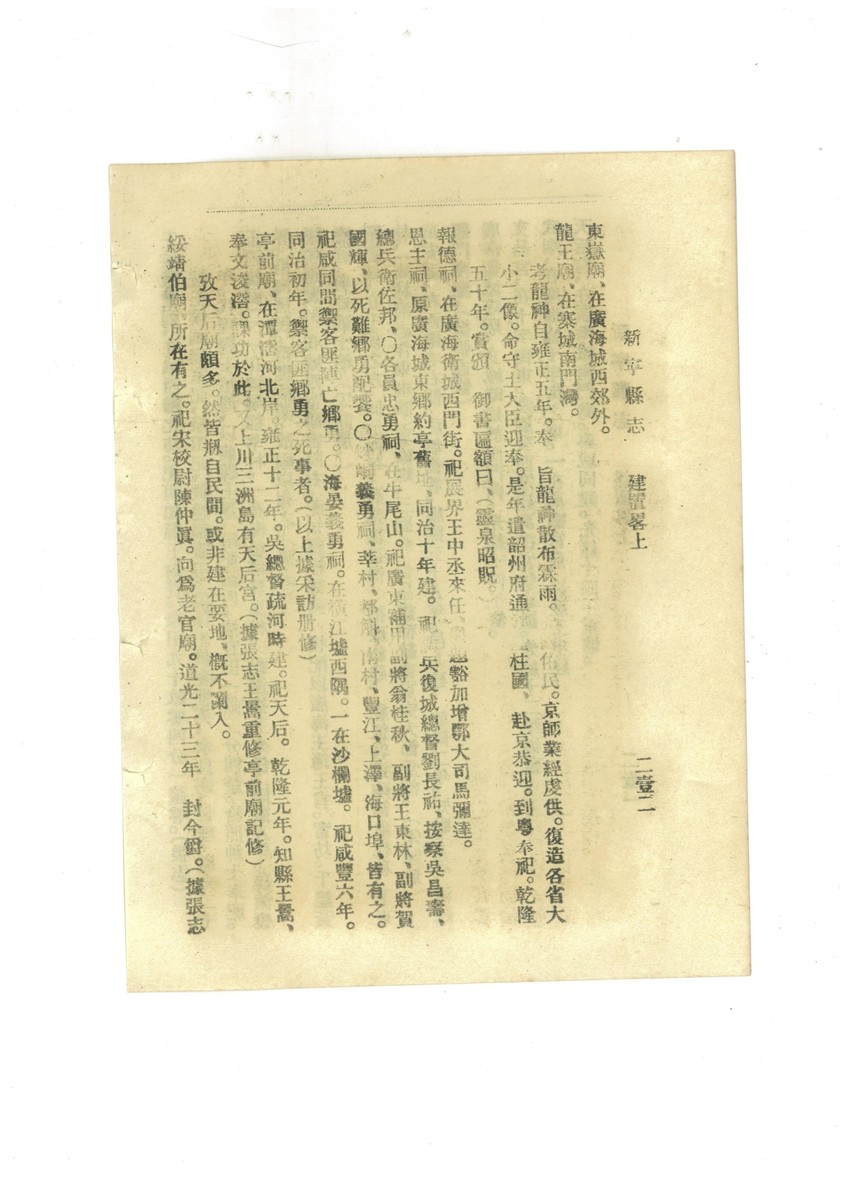 新寧縣志　建置畧上　二壹二
東嶽廟、在廣海城西郊外。
龍王廟、在寨城南門灣。
考龍神自雍正五年。奉　旨龍神散布霖雨。佑民。京師業經虔供。復造各省大
小二像。命守土大臣迎奉。是年遣韶州府通桂國、赴京恭迎。到粵奉祀。乾隆
五十年。賞頒　御書匾額曰、(靈泉昭貺。)
報德祠、在廣海衛城西門街。祀展界王中丞來任、豁加增鄂大司馬彌達。
恩主祠、原廣海城東鄉約亭舊址、同治十年建。祀兵復城總督劉長祐、按察吳昌壽、
總兵衛佐邦、〇各員忠勇祠、在牛尾山。祀廣東補用副將翁桂秋、副將王東林、副將賀
國輝、以死難鄉勇配饗。〇義勇祠、莘村、那、南村、豐江、上澤、海口埠、皆有之。
祀咸同間禦客匪陣亡鄉勇。〇海晏義勇祠。在江墟西隅。一在沙欄墟。祀咸豐六年。
同治初年。禦客匪鄉勇之死事者。(以上據采訪册修)
亭前廟、在潭滘河北岸。雍正十二年。吳總督疏河時建。祀天后。乾隆元年。知縣王暠、
奉文浚滘。課功於此。又上川三洲島有天后宮。(據張志王暠重修亭前廟記修)
攷天后廟頗多。然皆剏自民間。或非建在要地、概不闌入。
綏靖伯廟、所在有之。祀宋校尉陳仲眞。向爲老官廟。道光二十三年　封今爵。(據張志